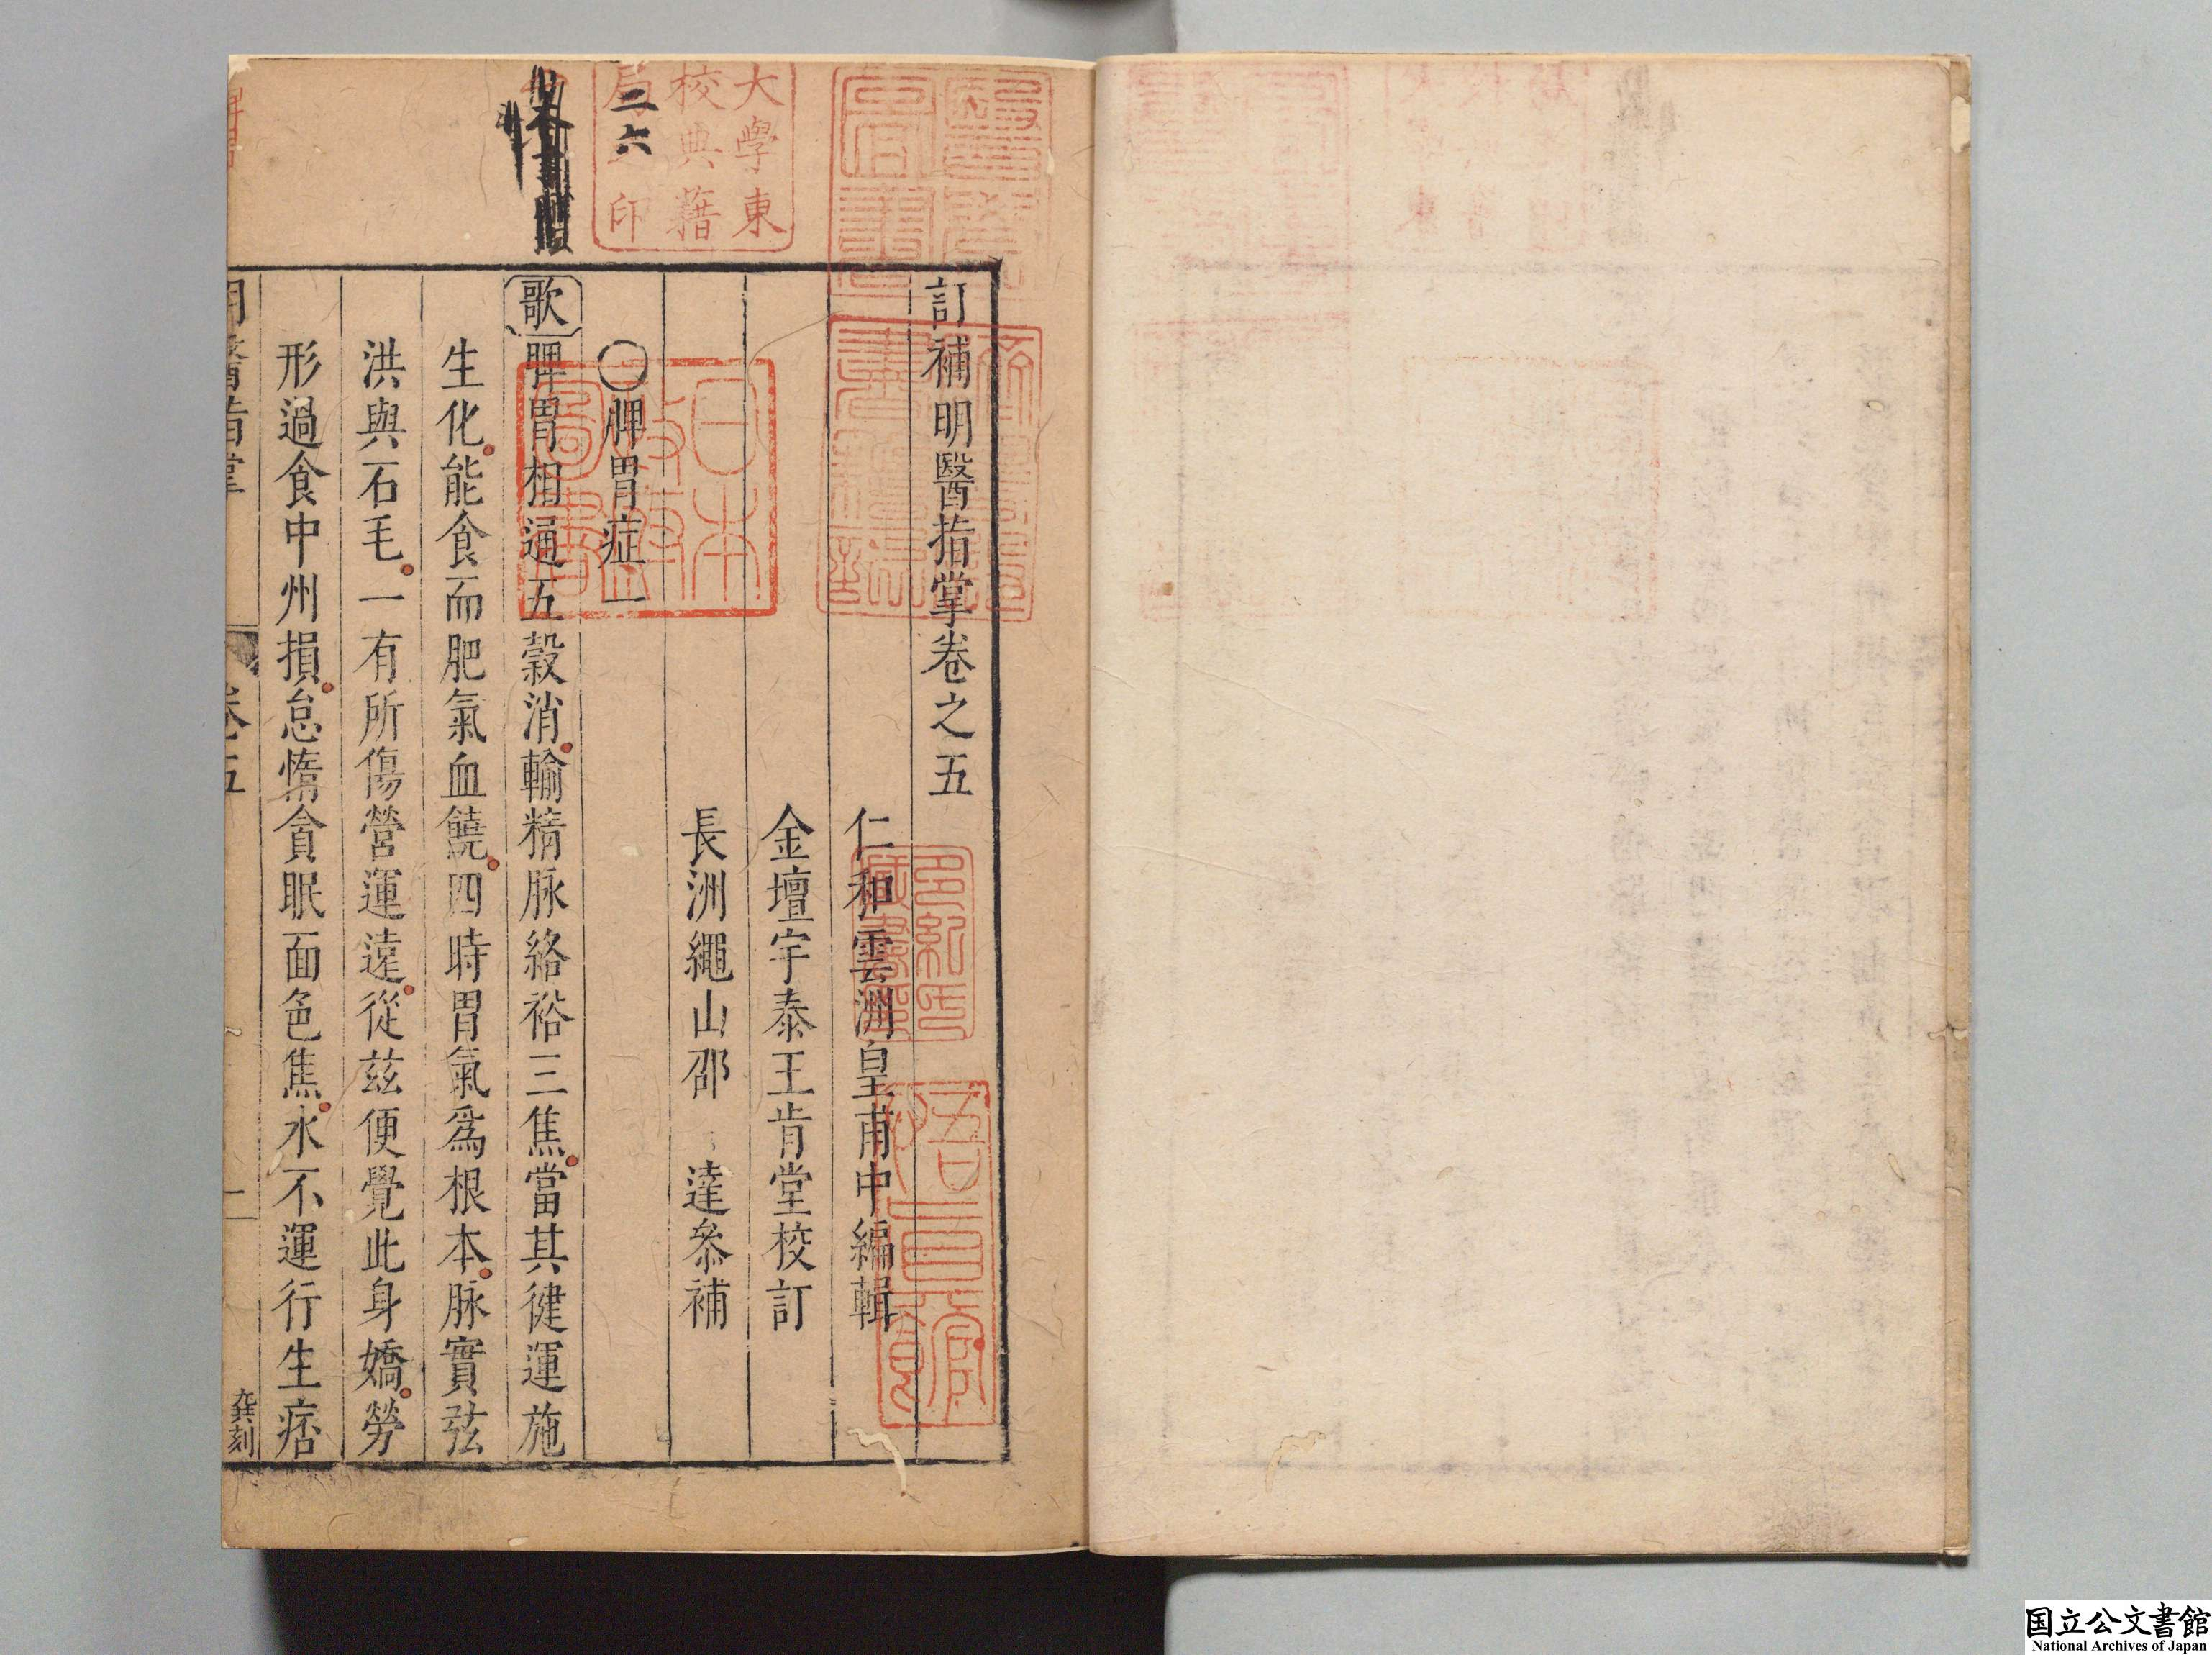 訂補明醫指掌卷之五
仁和雲洲皇甫中編輯
金壇宇泰王肯堂校訂
長洲繩山邵達參補
〇脾胃症一
歌 脾胃相通五穀消輸精脉絡裕三焦當其健運施
生化能食而肥氣血饒四時胃氣爲根本脉實弦
洪與石毛一有所傷營運遠從茲便覺此身嬌勞
形過食中州損怠惰貪眠面色焦水不運行生痞
明醫指掌
卷五
一
龔刻
二六
大學東
校典籍
局之印
日本
政府
圖書
多紀氏
藏書印
国立公文書館
National Archives of Japan